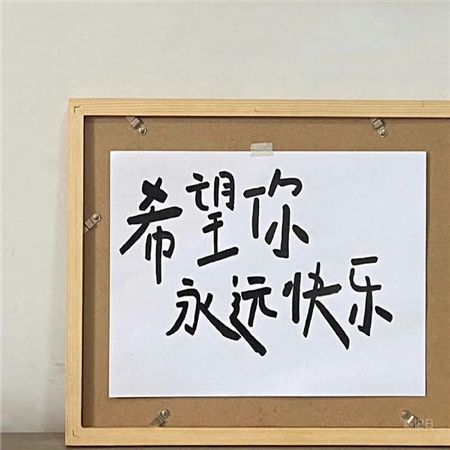 希望你
永远快乐